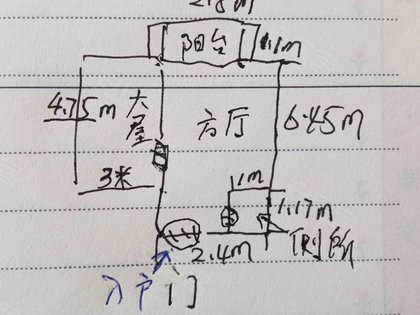 阳台
1.1m
4.75m
大屋
方厅
6.45m
3米
1m
1.17m
厕所
2.4m
入户门